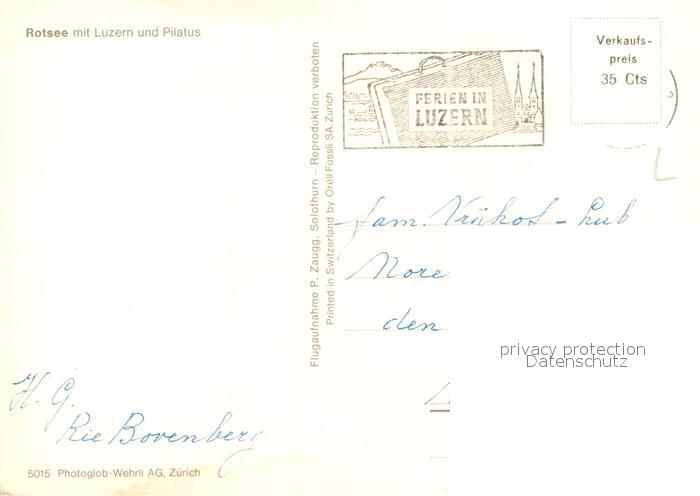 Rotsee mit Luzern und Pilatus
Verkaufs-
preis
35 Cts
FERIEN IN
LUZERN
Flugaufnahme P. Zaugg, Solothurn – Reproduktion verboten
Printed in Switzerland by Orell Füssli SA, Zürich
fam.
More
den
privacy protection
Datenschutz
H. G.
Rie Bovenberg
5015 Photoglob-Wehrli AG, Zürich